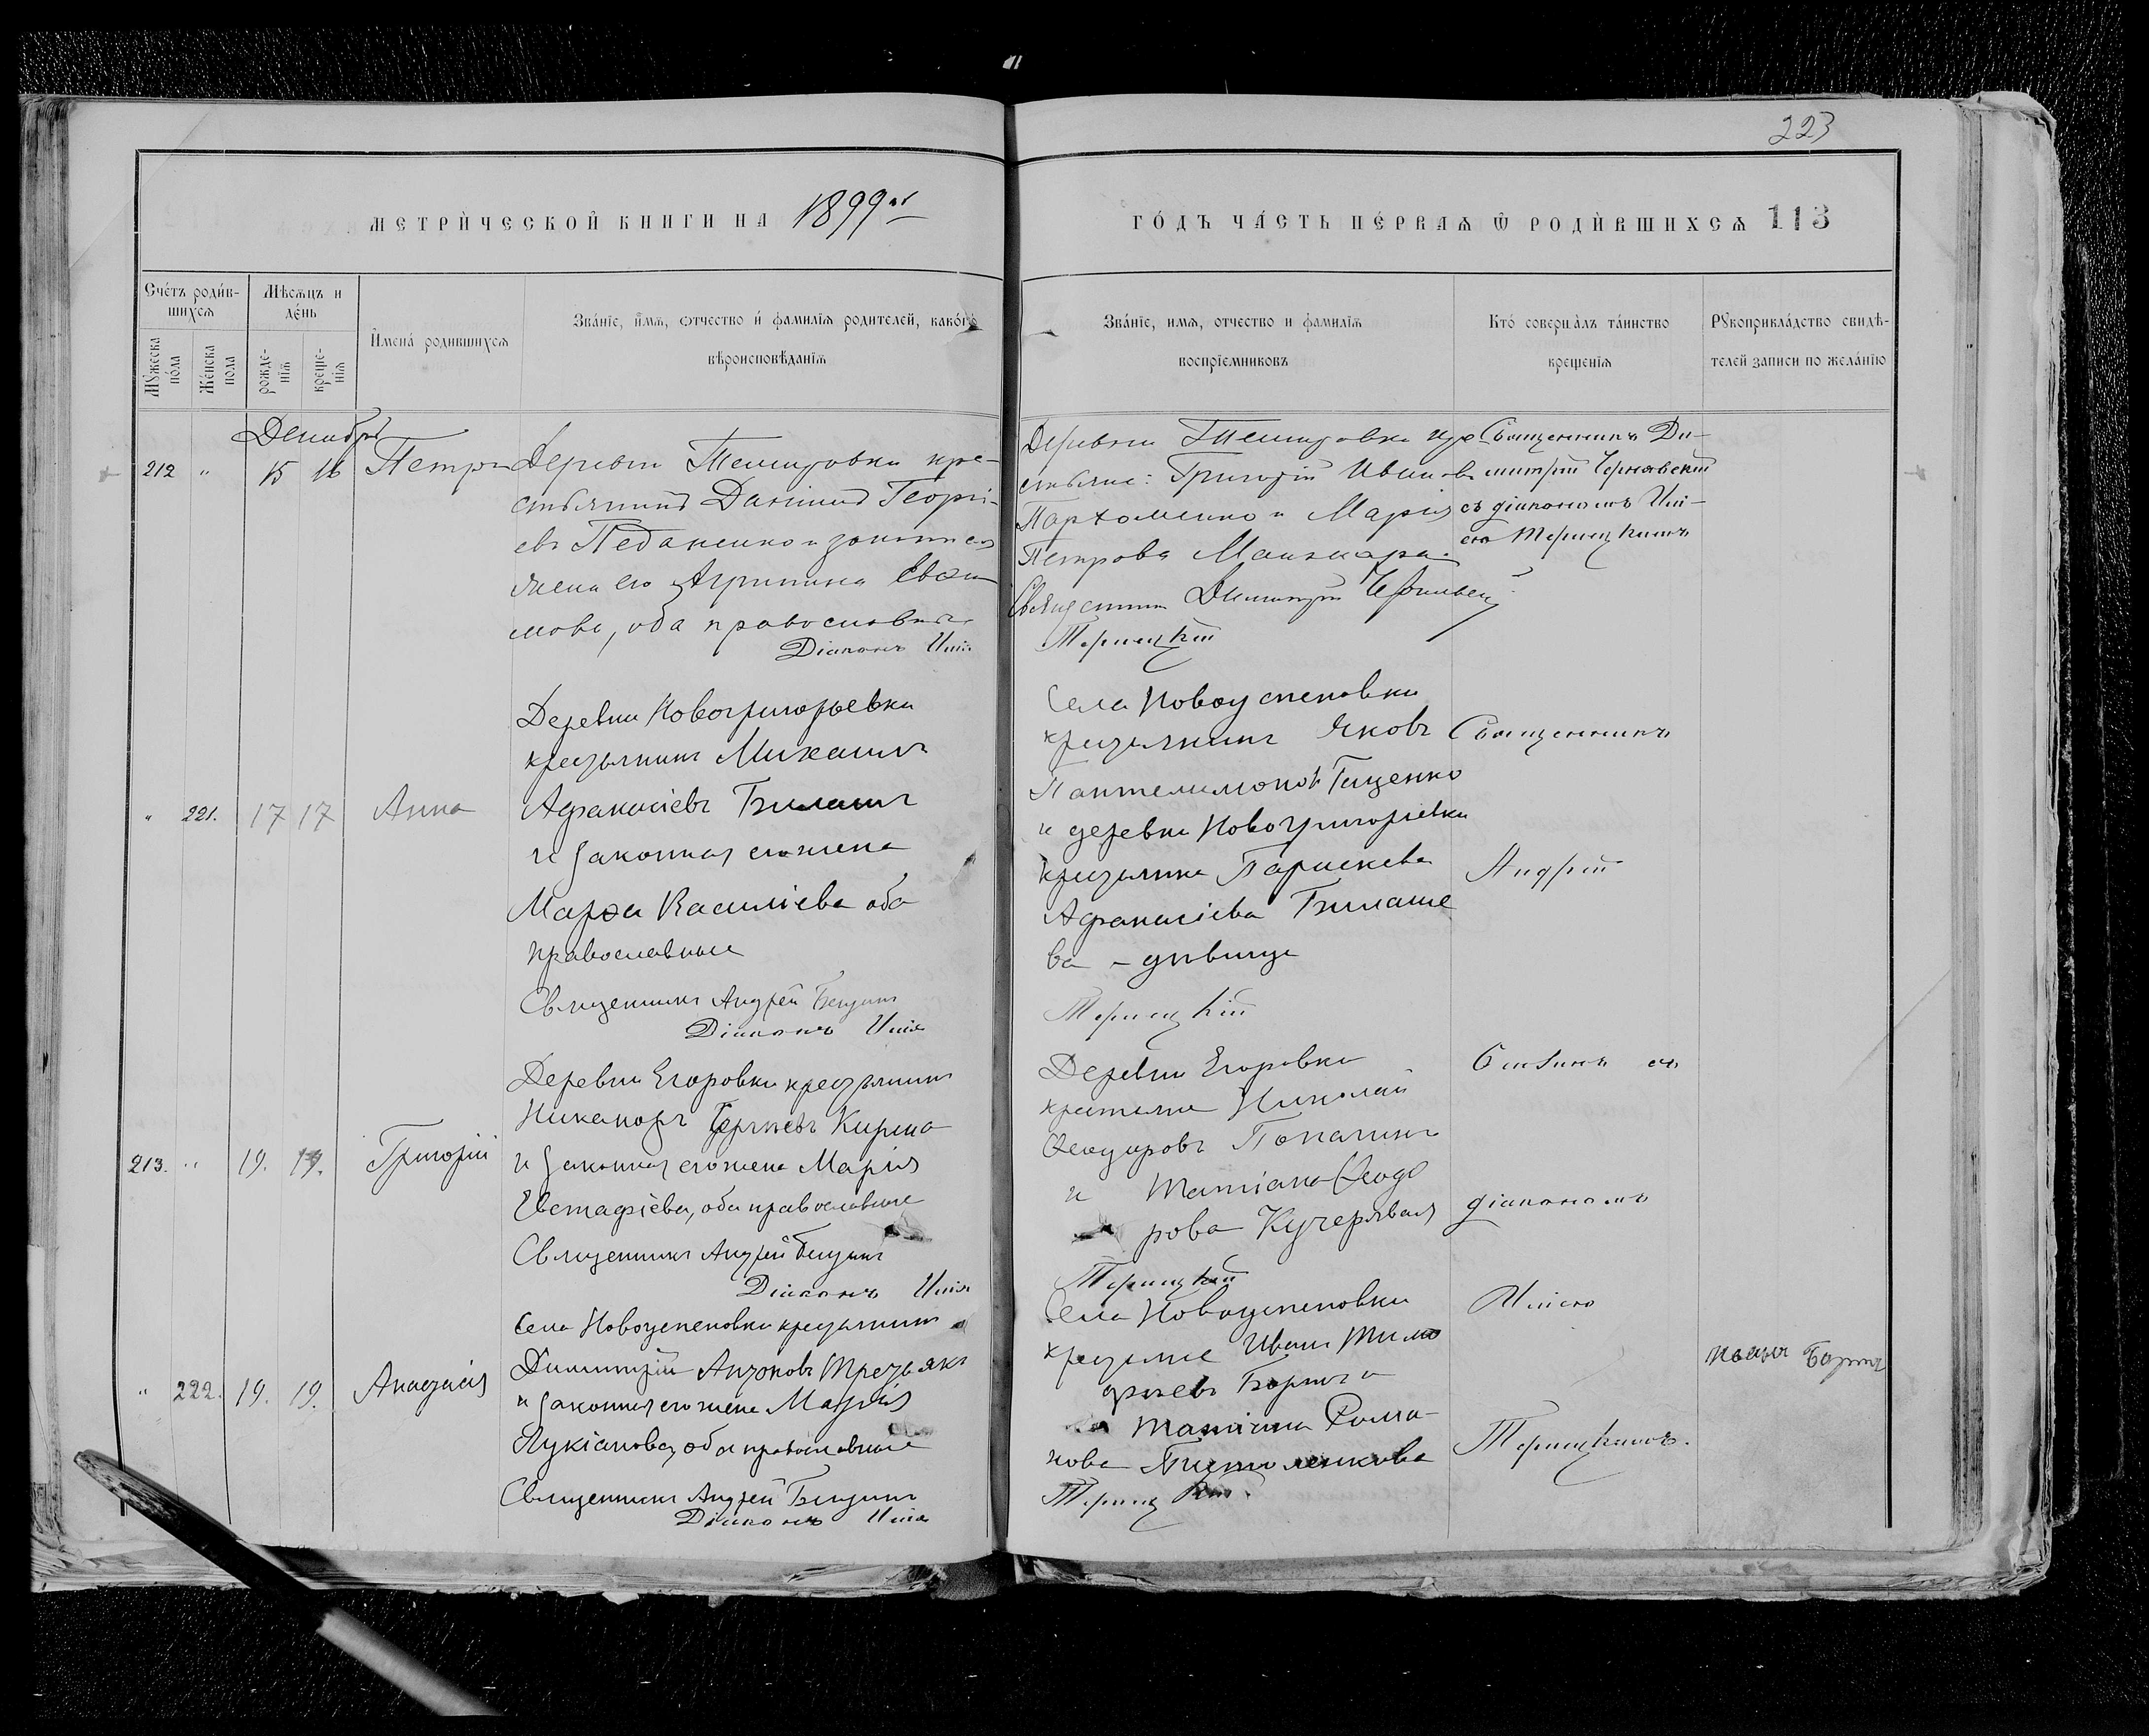 223
МЕТРИ́ЧЕСКОЙ КНИГИ НА 1899 й
ГО́ДЪ ЧА́СТЬ ПЕ́РВАѦ Ѿ РОДИ́ВШИХСѦ 113
Сче́тъ роди́в-
шихсѧ
Мѣсѧцъ и
де́нь
Мꙋжеска
по́ла
Же́нска
пола
рожде-
нїѧ
креще-
нїѧ
И҆мена́ родившихсѧ
Зва́нїе, и҆мѧ, отчество и҆ фамилїѧ родителей, како́гѡ
вѣроисповѣданїѧ
Зва́нїе, имѧ, отчество и фамилїѧ
воспрїемниковъ
Кто́ соверша́лъ та́инство
крещенїѧ
Рꙋкоприкла́дство свидѣ-
телей записи по жела́нїю
Декабрь
212 " 15 16 Петръ
Деревни Темировки кре-
стьянинъ Данiилъ Георгi-
евъ Педаненко и законная
жена его Агрипина Евфи
мова, оба православные
Дiаконъ Илiя
Деревни Темировки кре
стьяне: Григорiй Ивановъ
Пархоменко и Марiя
Петрова
Священникъ Димитрiй Чернявскiй
Терлецкiй
Священникъ Ди-
митрiй Чернявскiй
съ дiакономъ Илi-
ею Терлецкимъ
" 221. 17 17 Анна
Деревни Новогригорьевки
крестьянинъ Михаилъ
Афанасiевъ Билашъ
и законная его жена
Марфа Василiева оба
православные
Священникъ Андрей
Дiаконъ Илiя
Села Новоуспеновки
крестьянинъ Яковъ
Пантелимоновъ Тищенко
и деревни Новогригорiевки
крестьянка Параскева
Афанасiева Билаше
ва – дѣвица
Терлецкiй
Священникъ
Андрей
213. " 19. 19. Григорiй
Деревни Егоровки крестьянинъ
Никаноръ Кирша
и законная его жена Марiя
Евстафiева, оба православные
Священникъ Андрей
Дiаконъ Илiя
Деревни Егоровки
крестьяне Николай
Феодоровъ
и Татiана Феодо
рова Кучерявая
Терлецкiй
съ
дiакономъ
" 222. 19. 19. Анастасiя
Села Новоуспеновки крестьянинъ
Димитрiй Третьякъ
и законная его жена Марiя
Лукiанова, оба православные
Священникъ Андрей
Дiаконъ Илiя
Села Новоуспеновки
крестьяне Иванъ Тимо
феевъ
Татiана Рома-
нова
Терлецкiй
Илiею
Терлецкимъ.
Иванъ